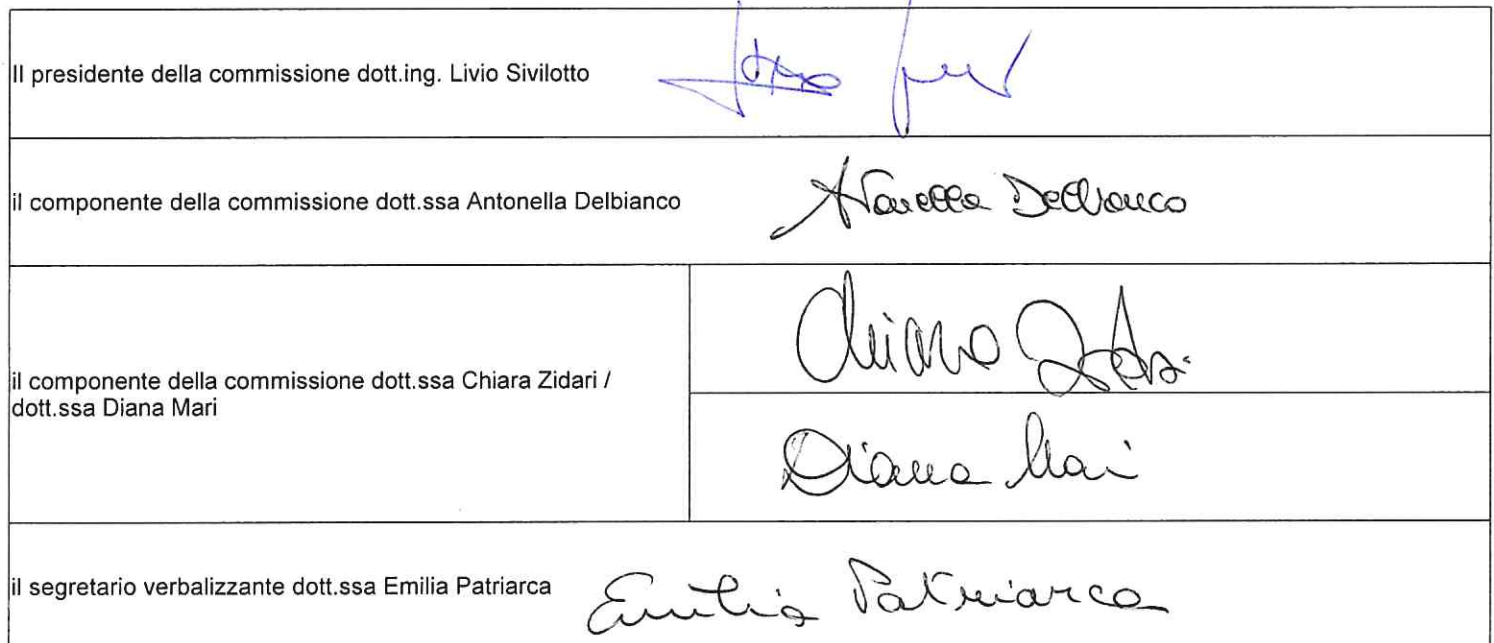 Il presidente della commissione dott.ing. Livio Sivilotto
il componente della commissione dott.ssa Antonella Delbianco
Antonella Delbianco
il componente della commissione dott.ssa Chiara Zidari /
dott.ssa Diana Mari
Chiara
Diana Mari
il segretario verbalizzante dott.ssa Emilia Patriarca
Emilia Patriarca